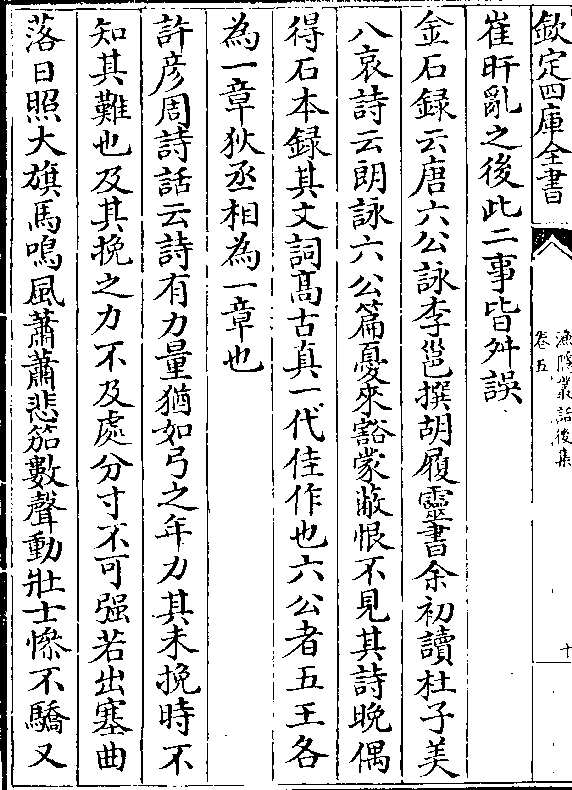 欽定四庫全書
漁隱叢話後集
卷五
十
崔旰亂之後此二事皆舛誤
金石録云唐六公詠李邕撰胡履靈書余初讀杜子美
八哀詩云朗詠六公篇憂來豁蒙蔽恨不見其詩晚偶
得石本録其文詞髙古真一代佳作也六公者五王各
為一章狄丞相為一章也
許彦周詩話云詩有力量猶如弓之年力其未挽時不
知其難也及其挽之力不及處分寸不可强若出塞曲
落日照大旗馬鳴風蕭蕭悲笳數聲動壯士慘不驕又